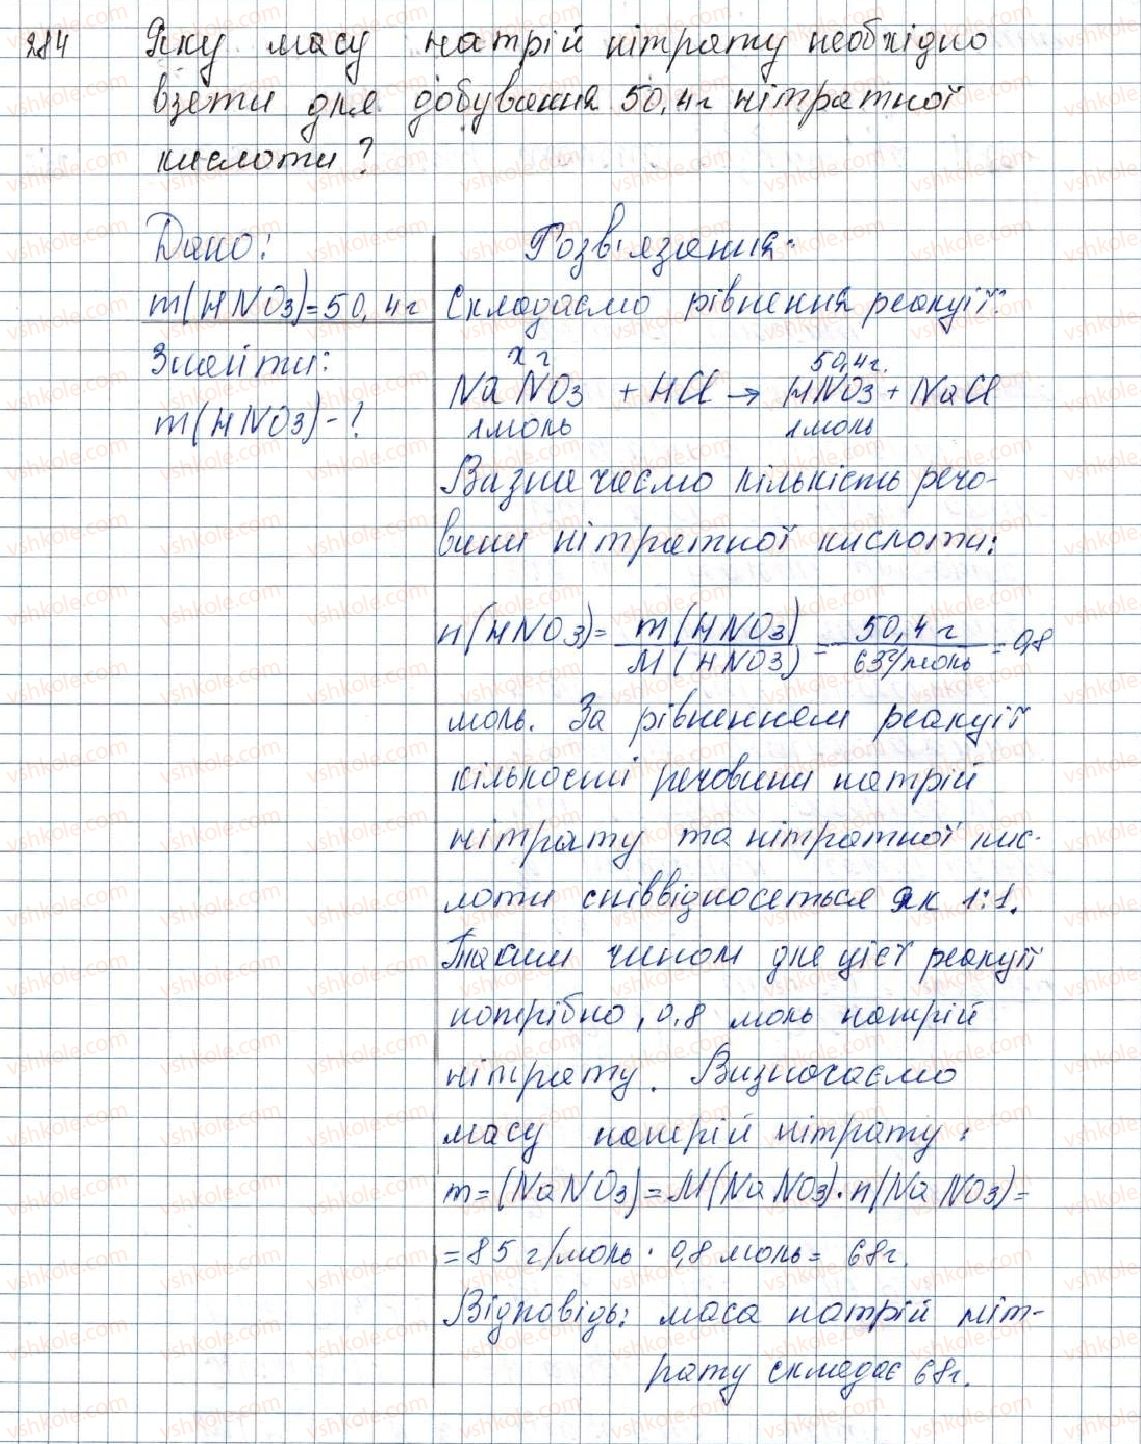 284 Яку масу натрій нітрату необхідно
взяти для добування 50,4г нітратної
кислоти?
Дано:
m(HNO3)=50,4г
Знайти:
m(HNO3)-?
Розв'язання:
Складаємо рівняння реакції:
x г 50,4г.
NaNO3 + HCl → HNO3 + NaCl
1моль 1моль
Визначаємо кількість речо-
вини нітратної кислоти:
n(HNO3)= m(HNO3) / M(HNO3) = 50,4 г / 63г/моль = 0,8
моль. За рівнянням реакції
кількості речовини натрій
нітрату та нітратної кис-
лоти співвідноситься як 1:1.
Таким чином для цієї реакції
потрібно, 0,8 моль натрій
нітрату. Визначаємо
масу натрій нітрату:
m=(NaNO3)=M(NaNO3)·n(NaNO3)=
=85 г/моль · 0,8 моль = 68г.
Відповідь: маса натрій ніт-
рату складає 68г.
vshkole.com